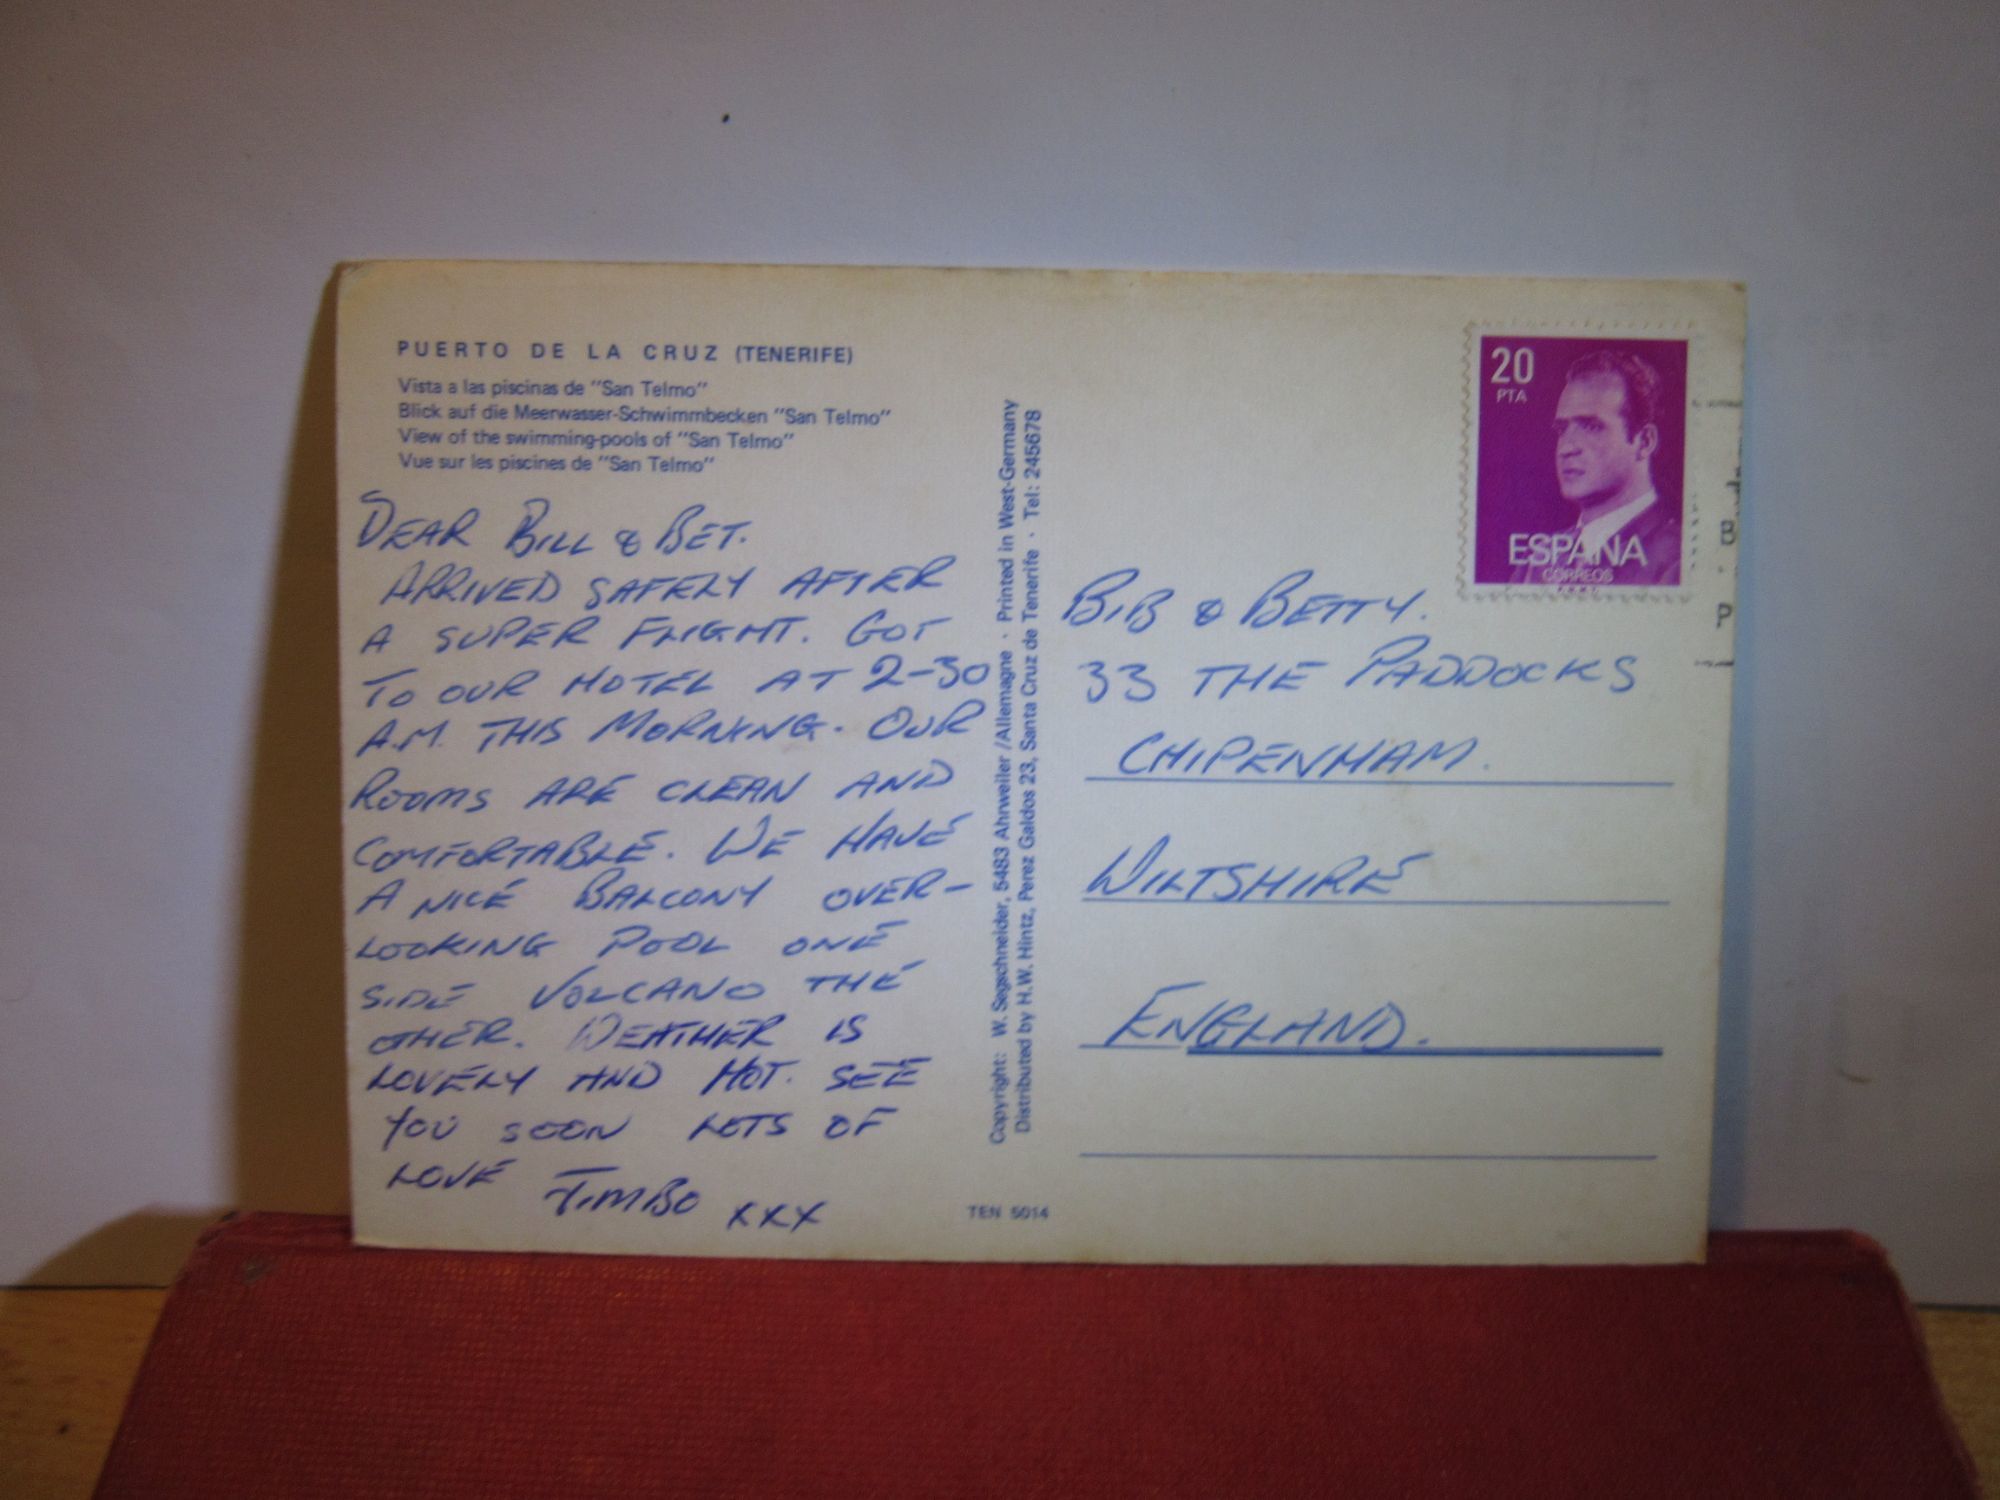 PUERTO DE LA CRUZ (TENERIFE)
Vista a las piscinas de "San Telmo"
Blick auf die Meerwasser-Schwimmbecken "San Telmo"
View of the swimming-pools of "San Telmo"
Vue sur les piscines de "San Telmo"
DEAR BILL & BET.
ARRIVED SAFELY AFTER
A SUPER FLIGHT. GOT
TO OUR HOTEL AT 2-30
A.M. THIS MORNING. OUR
ROOMS ARE CLEAN AND
COMFORTABLE. WE HAVE
A NICE BALCONY OVER-
LOOKING POOL ONE
SIDE VOLCANO THE
OTHER. WEATHER IS
LOVELY AND HOT. SEE
YOU SOON LOTS OF
LOVE TIMBO XXX
Copyright: W. Segschneider, 5483 Ahrweiler/Allemagne · Printed in West-Germany
Distributed by H.W. Hintz, Perez Galdos 23, Santa Cruz de Tenerife · Tel: 245678
TEN 5014
20
PTA
ESPAÑA
CORREOS
B
P
BIB & BETTY.
33 THE PADDOCKS
CHIPENHAM.
WILTSHIRE
ENGLAND.